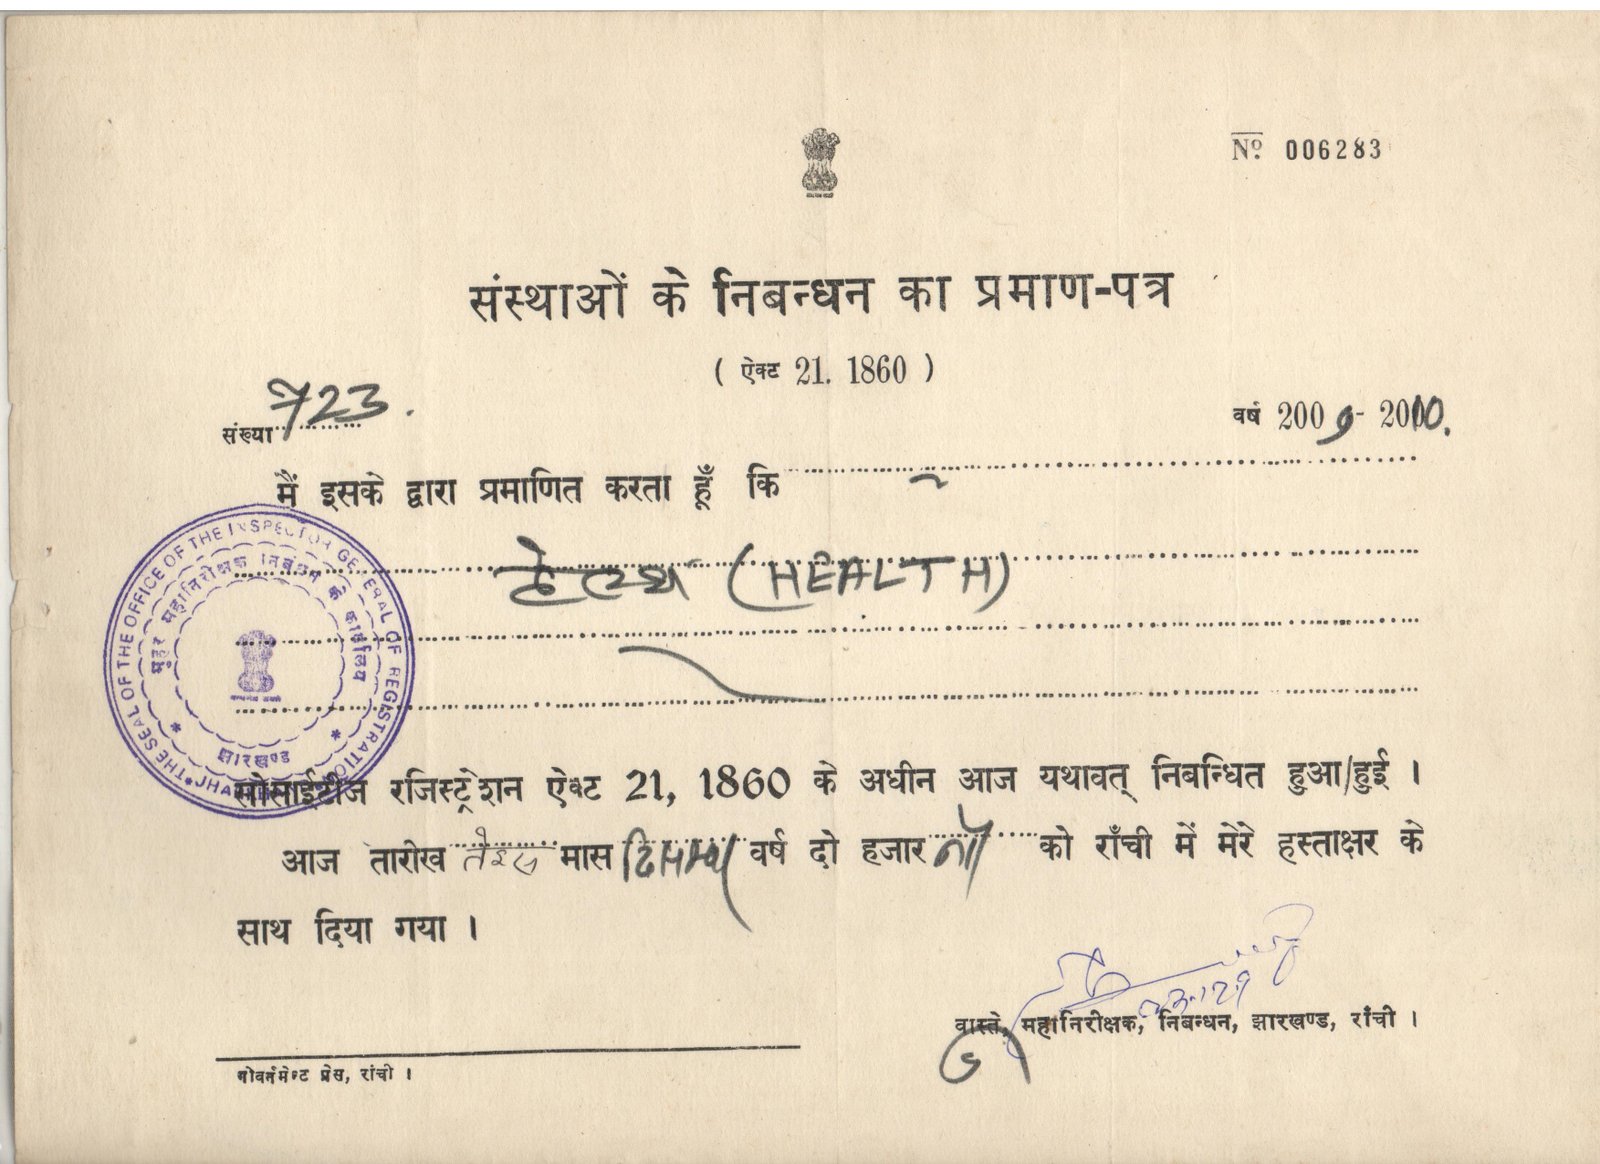 Nº 006283
संस्थाओं के निबन्धन का प्रमाण-पत्र
( ऐक्ट 21. 1860 )
संख्या 723.
वर्ष 2009-2010.
मैं इसके द्वारा प्रमाणित करता हूँ कि
हेल्थ (HEALTH)
सोसाईटीज रजिस्ट्रेशन ऐक्ट 21, 1860 के अधीन आज यथावत् निबन्धित हुआ/हुई ।
आज तारीख तेईस मास दिसम्बर वर्ष दो हजार नौ को राँची में मेरे हस्ताक्षर के
साथ दिया गया ।
वास्ते, महानिरीक्षक, निबन्धन, झारखण्ड, राँची ।
गोवर्तमेण्ट प्रेस, रांची ।
THE SEAL OF THE OFFICE OF THE INSPECTOR GENERAL OF REGISTRATION * JHA
मुहर महानिरीक्षक निबंधन का कार्यालय
झारखण्ड